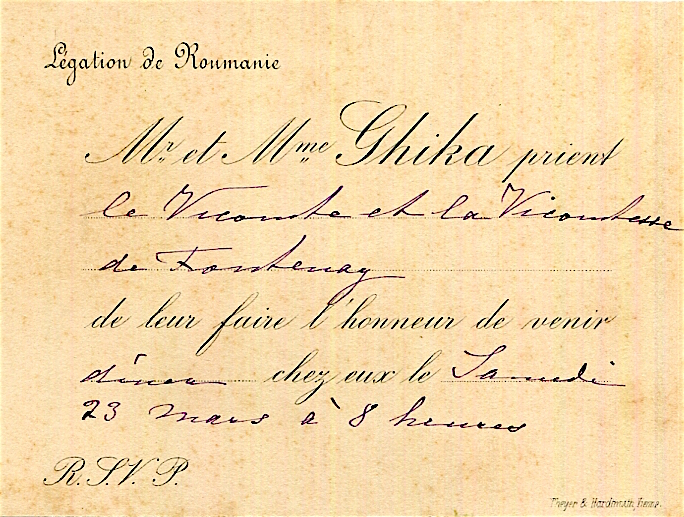 Légation de Roumanie
Mr. et Mme. Ghika prient
le Vicomte et la Vicomtesse
de Fontenay
de leur faire l'honneur de venir
dîner chez eux le Samedi
23 mars à 8 heures
R.S.V.P.
Theyer & Hardtmuth,